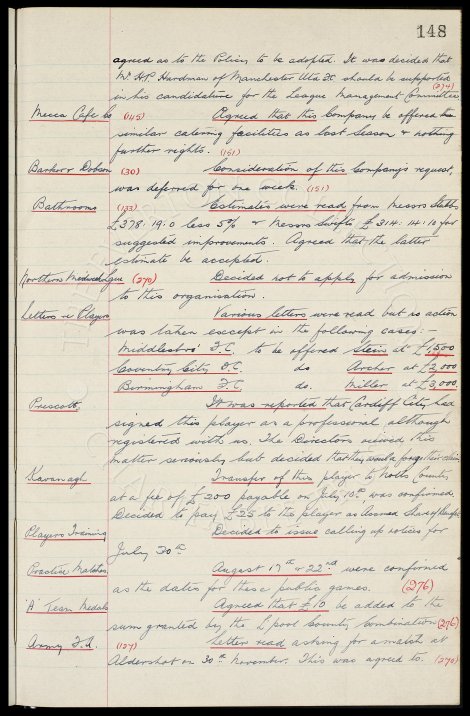 148
agreed as to the Policy to be adopted. It was decided that
Mr H.P. Hardman of Manchester Utd F.C should be supported
in his candidature for the League Management Committee (274)
Mecca Cafe Co (145) Agreed that this Company be offered the
similar catering facilities as last season & nothing
further rights. (151)
Barker & Dobson (30) Consideration of this Company's request,
was deferred for one week. (151)
Bathrooms (133) Estimates were read from Messrs Stubbs
£378:19:0 less 5% & Messrs Swifts £314:14:10 for
suggested improvements. Agreed that the latter
estimate be accepted.
Northern Midweek Lgue (270) Decided not to apply for admission
to this organisation.
Letters re Players Various letters were read but no action
was taken except in the following cases:-
Middlesbro' F.C. to be offered Stein at £1,500
Coventry City F.C. do Archer at £2,000
Birmingham F.C. do. Miller at £3,000
Prescott, It was reported that Cardiff City had
signed this player as a professional although
registered with us. The Directors viewed this
matter seriously but decided that they would forgo their claim
Kavanagh Transfer of this player to Notts County
at a fee of £200 payable on July 10th was confirmed.
Decided to pay £25 to the player as accrued Share of Benefit
Players Training Decided to issue calling up notices for
July 30th
Practice Matches August 17th & 22nd were confirmed
as the dates for these public games. (276)
'A' Team Medals Agreed that £10 be added to the
sum granted by the L'pool County Combination (276)
Army F.A. (127) Letter read asking for a match at
Aldershot on 30th November. This was agreed to. (270)